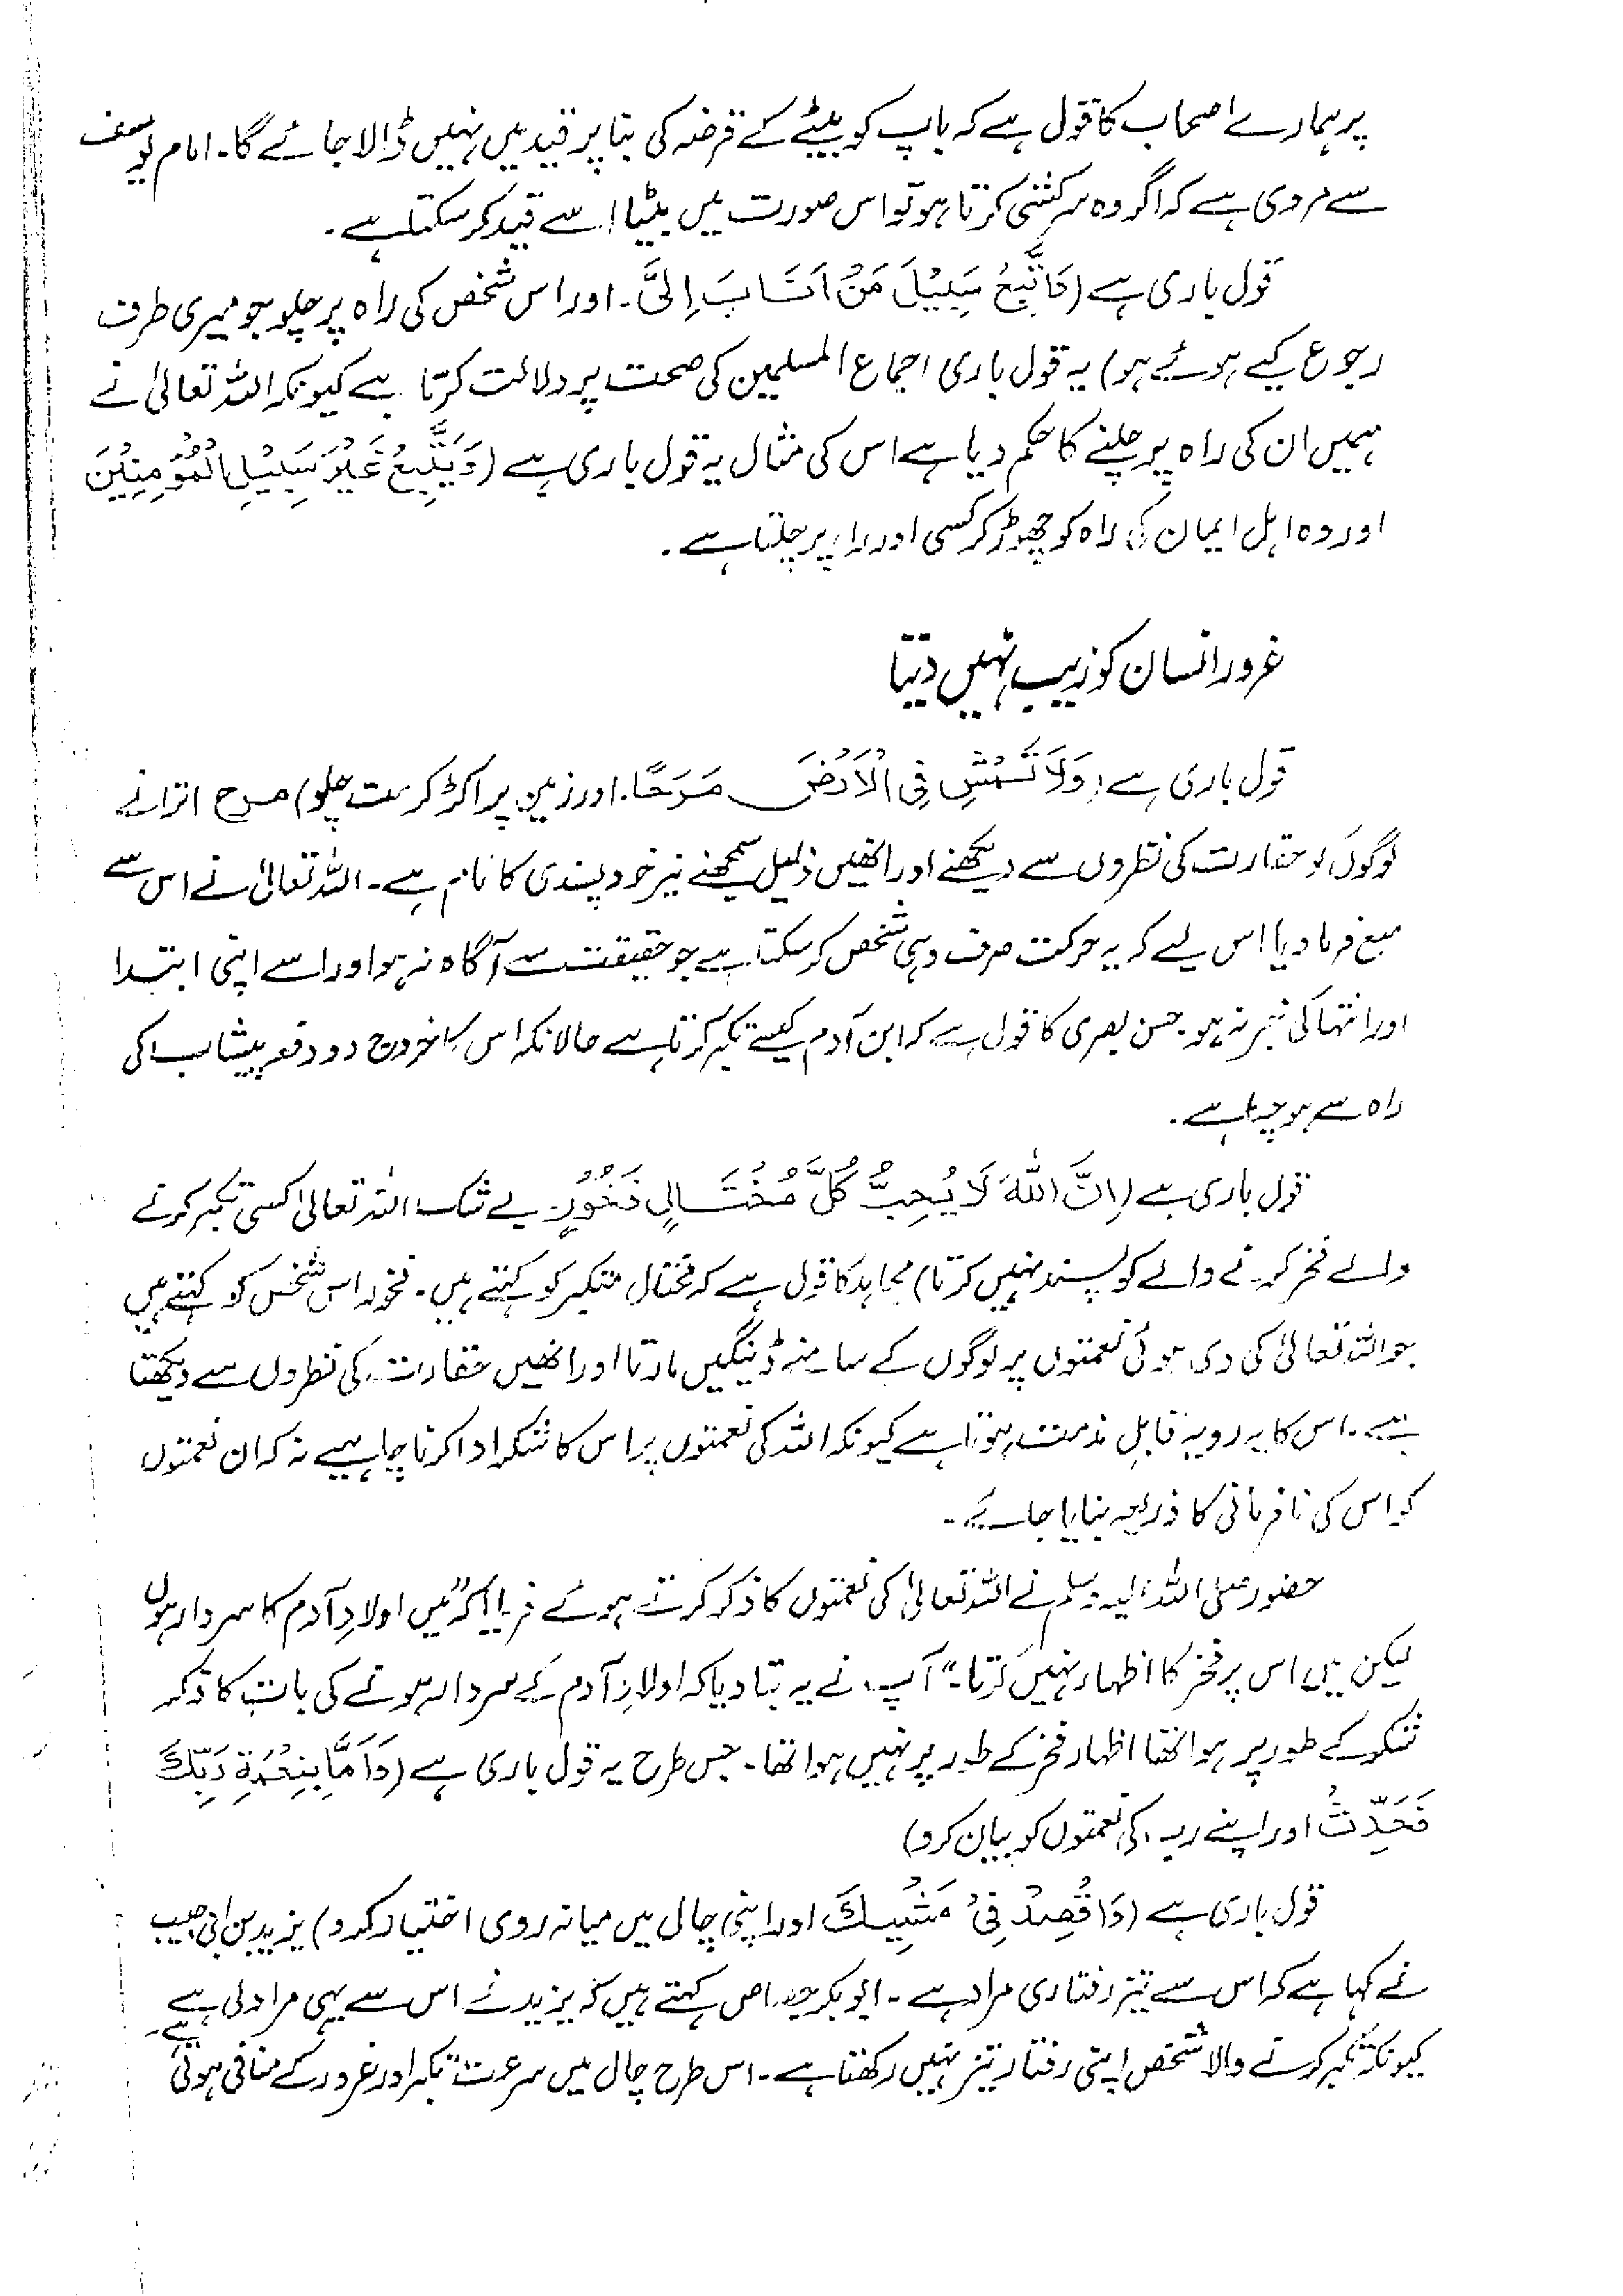 پر ہمارے اصحاب کا قول ہے کہ باپ کو بیٹے کے قرضہ کی بنا پر قید میں نہیں ڈالا جائے گا۔ امام یوسف
سے مروی ہے کہ اگر وہ سرکشی کرتا ہو تو اس صورت میں بیٹا اسے قید کر سکتا ہے۔
قول باری ہے (فَاتَّبِعْ سَبِیْلَ مَنْ اَنَابَ اِلَیَّ۔ اور اس شخص کی راہ پر چلو جو میری طرف
رجوع کیے ہوئے ہو) یہ قول باری اجماع المسلمین کی صحت پر دلالت کرتا ہے کیونکہ اللہ تعالیٰ نے
ہمیں ان کی راہ پر چلنے کا حکم دیا ہے اس کی مثال یہ قول باری ہے (وَیَتَّبِعْ غَیْرَ سَبِیْلِ الْمُؤْمِنِیْنَ
اور وہ اہل ایمان کی راہ کو چھوڑ کر کسی اور راہ پر چلتا ہے۔
غرور انسان کو زیب نہیں دیتا
قول باری ہے (وَلَا تَمْشِ فِی الْاَرْضِ مَرَحًا۔ اور زمین پر اکڑ کر مت چلو) مرح اترانے
لوگوں کو حقارت کی نظروں سے دیکھنے اور انھیں ذلیل سمجھنے نیز خود پسندی کا نام ہے۔ اللہ تعالیٰ نے اس سے
منع فرما دیا اس لیے کہ یہ حرکت صرف وہی شخص کر سکتا ہے جو حقیقت سے آگاہ نہ ہو اور اسے اپنی ابتدا
اور انتہا کی خبر نہ ہو۔ حسن بصری کا قول ہے کہ ابن آدم کیسے تکبر کرتا ہے حالانکہ اس کا خروج دو دفعہ پیشاب کی
راہ سے ہو چکا ہے۔
قول باری ہے (اِنَّ اللّٰہَ لَا یُحِبُّ کُلَّ مُخْتَالٍ فَخُوْرٍ۔ بے شک اللہ تعالیٰ کسی تکبر کرنے
والے فخر کرنے والے کو پسند نہیں کرتا) مجاہد کا قول ہے کہ مختال متکبر کو کہتے ہیں۔ فخور اس شخص کو کہتے ہیں
جو اللہ تعالیٰ کی دی ہوئی نعمتوں پر لوگوں کے سامنے ڈینگیں مارتا اور انھیں حقارت کی نظروں سے دیکھتا
ہے۔ اس کا یہ رویہ قابلِ مذمت ہوتا ہے کیونکہ اللہ کی نعمتوں پر اس کا شکر ادا کرنا چاہیے نہ کہ ان نعمتوں
کو اس کی نافرمانی کا ذریعہ بنایا جائے۔
حضور صلی اللہ علیہ وسلم نے اللہ تعالیٰ کی نعمتوں کا ذکر کرتے ہوئے فرمایا کہ "میں اولادِ آدم کا سردار ہوں
لیکن میں اس پر فخر کا اظہار نہیں کرتا۔" آپ نے یہ بتا دیا کہ اولادِ آدم کے سردار ہونے کی بات کا ذکر
شکر کے طور پر ہوا تھا اظہار فخر کے طور پر نہیں ہوا تھا۔ جس طرح یہ قول باری ہے (وَاَمَّا بِنِعْمَۃِ رَبِّكَ
فَحَدِّثْ اور اپنے رب کی نعمتوں کو بیان کرو)
قول باری ہے (وَاقْصِدْ فِیْ مَشْیِكَ اور اپنی چال میں میانہ روی اختیار کرو) یزید بن ابی حبیب
نے کہا ہے کہ اس سے تیز رفتاری مراد ہے۔ ابوبکر جصاص کہتے ہیں کہ یزید نے اس سے یہی مراد لی ہے
کیونکہ تکبر کرنے والا شخص اپنی رفتار تیز نہیں رکھتا ہے۔ اس طرح چال میں سرعت تکبر اور غرور کے منافی ہوتی ہے۔